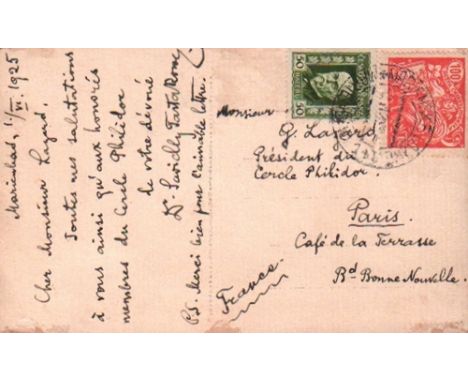 Marienbad, 1/VI. 1925
Cher Monsieur Lazard.
Toutes mes salutations
à vous ainsi qu'aux honorés
membres du Cercle Philidor
de votre dévoué
Dr. Savielly Tartakower
PS. Merci bien pour l'aimable lettre.
Monsieur
G. Lazard
Président du
Cercle Philidor.
Paris.
Café de la Terrasse
Bd Bonne Nouvelle.
France.
50
50
100